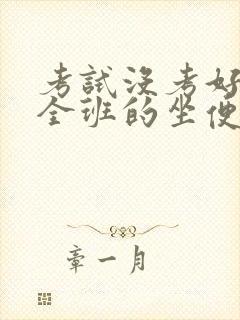 考試沒考好
全班的坐便
章一月